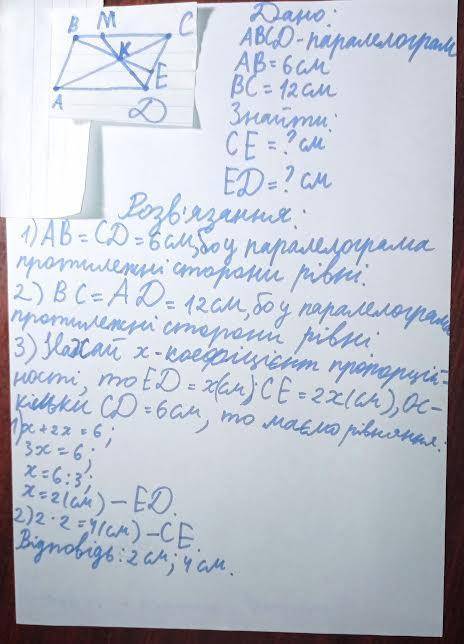 B M C
K
E
A D
Дано:
ABCD-паралелограм
AB=6см
BC=12см
Знайти:
CE=?см
ED=?см
Розв'язання:
1) AB=CD=6см, бо у паралелограма
протилежні сторони рівні.
2) BC=AD=12см, бо у паралелограма
протилежні сторони рівні.
3) Нехай x-коефіцієнт пропорцій-
ності, то ED=x(см); CE=2x(см), Ос-
кільки CD=6см, то маємо рівняння:
1) x+2x=6;
3x=6;
x=6:3;
x=2(см)-ED.
2) 2·2=4(см)-CE.
Відповідь: 2см; 4см.